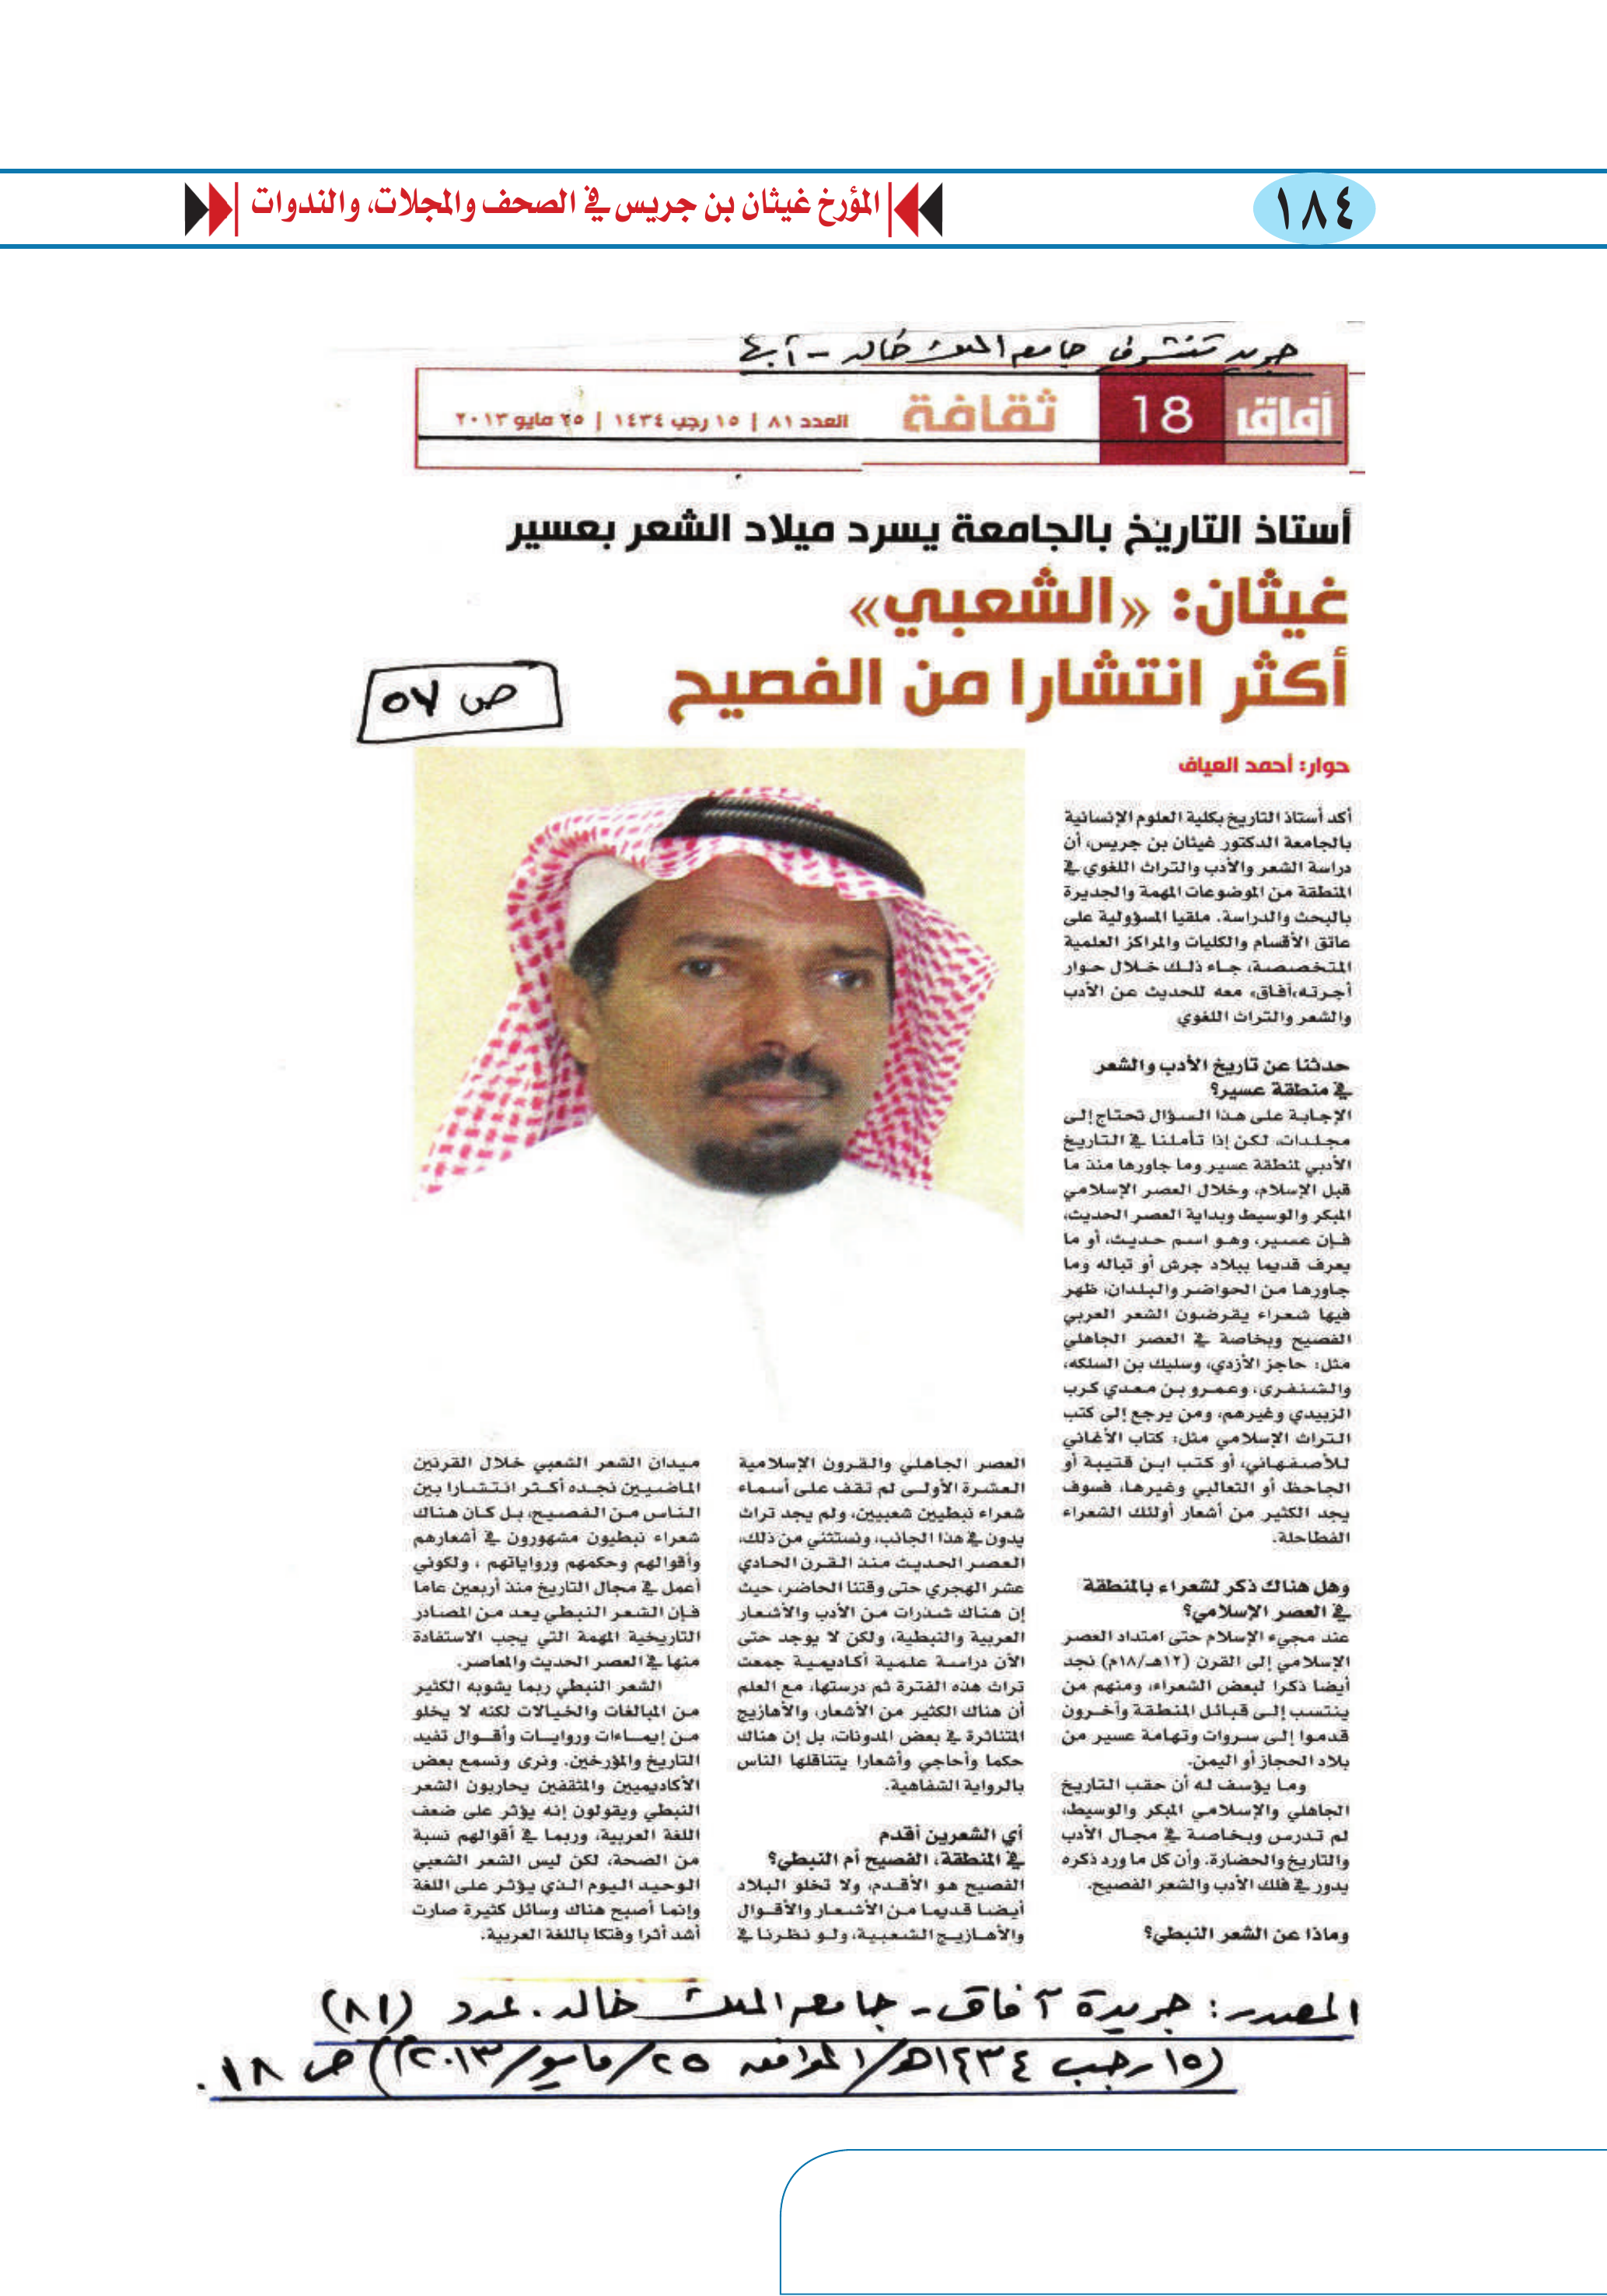 ١٨٤
المؤرخ غيثان بن جريس في الصحف والمجلات، والندوات
جامعة الملك خالد - أبها
آفاق
18
ثقافة
العدد ٨١ | ١٥ رجب ١٤٣٤ | ٢٥ مايو ٢٠١٣
أستاذ التاريخ بالجامعة يسرد ميلاد الشعر بعسير
غيثان: «الشعبي»
أكثر انتشارا من الفصيح
ص ٥٧
حوار: أحمد العياف
أكد أستاذ التاريخ بكلية العلوم الإنسانية
بالجامعة الدكتور غيثان بن جريس، أن
دراسة الشعر والأدب والتراث اللغوي في
المنطقة من الموضوعات المهمة والجديرة
بالبحث والدراسة، ملقيا المسؤولية على
عاتق الأقسام والكليات والمراكز العلمية
المتخصصة، جاء ذلك خلال حوار
أجرته «آفاق» معه للحديث عن الأدب
والشعر والتراث اللغوي
حدثنا عن تاريخ الأدب والشعر
في منطقة عسير؟
الإجابة على هذا السؤال تحتاج إلى
مجلدات، لكن إذا تأملنا في التاريخ
الأدبي لمنطقة عسير وما جاورها منذ ما
قبل الإسلام، وخلال العصر الإسلامي
المبكر والوسيط وبداية العصر الحديث،
فإن عسير، وهو اسم حديث، أو ما
يعرف قديما ببلاد جرش أو تباله وما
جاورها من الحواضر والبلدان، ظهر
فيها شعراء يقرضون الشعر العربي
الفصيح وبخاصة في العصر الجاهلي
مثل: حاجز الأزدي، وسليك بن السلكه،
والشنفرى، وعمرو بن معدي كرب
الزبيدي وغيرهم، ومن يرجع إلى كتب
التراث الإسلامي مثل: كتاب الأغاني
للأصفهاني، أو كتب ابن قتيبة أو
الجاحظ أو الثعالبي وغيرها، فسوف
يجد الكثير من أشعار أولئك الشعراء
الفطاحلة.
وهل هناك ذكر لشعراء بالمنطقة
في العصر الإسلامي؟
عند مجيء الإسلام حتى امتداد العصر
الإسلامي إلى القرن (١٢هـ/١٨م) نجد
أيضا ذكرا لبعض الشعراء، ومنهم من
ينتسب إلى قبائل المنطقة وآخرون
قدموا إلى سروات وتهامة عسير من
بلاد الحجاز أو اليمن.
وما يؤسف له أن حقب التاريخ
الجاهلي والإسلامي المبكر والوسيط،
لم تدرس وبخاصة في مجال الأدب
والتاريخ والحضارة، وأن كل ما ورد ذكره
يدور في فلك الأدب والشعر الفصيح.
وماذا عن الشعر النبطي؟
العصر الجاهلي والقرون الإسلامية
العشرة الأولى لم تقف على أسماء
شعراء نبطيين شعبيين، ولم يجد تراث
يدون في هذا الجانب، ونستثني من ذلك،
العصر الحديث منذ القرن الحادي
عشر الهجري حتى وقتنا الحاضر، حيث
إن هناك شذرات من الأدب والأشعار
العربية والنبطية، ولكن لا يوجد حتى
الآن دراسة علمية أكاديمية جمعت
تراث هذه الفترة ثم درستها، مع العلم
أن هناك الكثير من الأشعار، والأهازيج
المتناثرة في بعض المدونات، بل إن هناك
حكما وأحاجي وأشعارا يتناقلها الناس
بالرواية الشفاهية.
أي الشعرين أقدم
في المنطقة، الفصيح أم النبطي؟
الفصيح هو الأقدم، ولا تخلو البلاد
أيضا قديما من الأشعار والأقوال
والأهازيج الشعبية، ولو نظرنا في
ميدان الشعر الشعبي خلال القرنين
الماضيين نجده أكثر انتشارا بين
الناس من الفصيح، بل كان هناك
شعراء نبطيون مشهورون في أشعارهم
وأقوالهم وحكمهم ورواياتهم ، ولكوني
أعمل في مجال التاريخ منذ أربعين عاما
فإن الشعر النبطي يعد من المصادر
التاريخية المهمة التي يجب الاستفادة
منها في العصر الحديث والمعاصر.
الشعر النبطي ربما يشوبه الكثير
من المبالغات والخيالات لكنه لا يخلو
من إيماءات وروايات وأقوال تفيد
التاريخ والمؤرخين. ونرى ونسمع بعض
الأكاديميين والمثقفين يحاربون الشعر
النبطي ويقولون إنه يؤثر على ضعف
اللغة العربية، وربما في أقوالهم نسبة
من الصحة، لكن ليس الشعر الشعبي
الوحيد اليوم الذي يؤثر على اللغة
وإنما أصبح هناك وسائل كثيرة صارت
أشد أثرا وفتكا باللغة العربية.
المصدر: جريدة آفاق - جامعة الملك خالد. عدد (٨١)
(١٥ رجب ١٤٣٤هـ/ الموافق ٢٥/مايو/٢٠١٣م) ص ١٨.